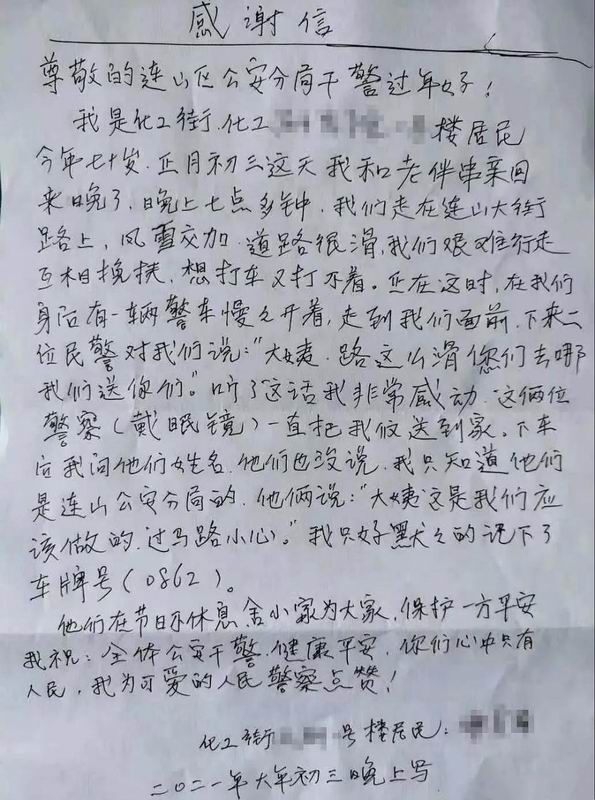 感谢信
尊敬的连山区公安分局干警过年好！
我是化工街.化工 楼居民
今年七十岁.正月初三这天我和老伴串亲回
来晚了.晚上七点多钟.我们走在连山大街
路上，风雪交加.道路很滑，我们艰难行走
互相挽扶，想打车又打不着。正在这时，在我们
身后有一辆警车慢々开着，走到我们面前.下来二
位民警对我们说：“大姨.路这么滑您们去哪
我们送你们。”听了这话我非常感动.这俩位
警察（戴眼镜）一直把我们送到家。下车
后我问他们姓名.他们也没说，我只知道他们
是连山公安分局的.他俩说：“大姨这是我们应
该做的.过马路小心。”我只好默々的记下了
车牌号（0862）。
他们在节日不休息舍小家为大家，保护一方平安
我祝：全体公安干警.健康平安，你们心中只有
人民，我为可爱的人民警察点赞！
化工街 号楼居民：
二〇二一年大年初三晚上写